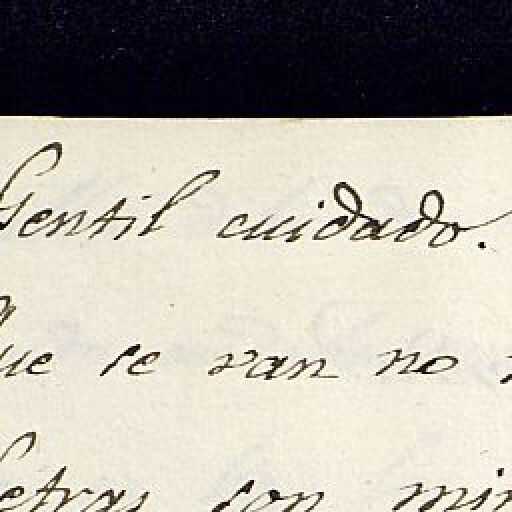 Gentil cuidado.
que se van no
Letras son